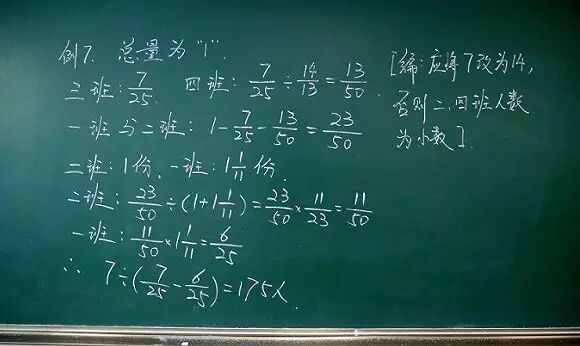 例7. 总量为“1”.
三班: 7/25. 四班: 7/25 ÷ 14/13 = 13/50.
一班与二班: 1 - 7/25 - 13/50 = 23/50
二班: 1份. 一班: 1 1/11 份.
二班: 23/50 ÷ (1 + 1 1/11) = 23/50 × 11/23 = 11/50
一班: 11/50 × 1 1/11 = 6/25
∴ 7 ÷ (7/25 - 6/25) = 175人.
[编: 应将7改为14,
否则二、四班人数
为小数].